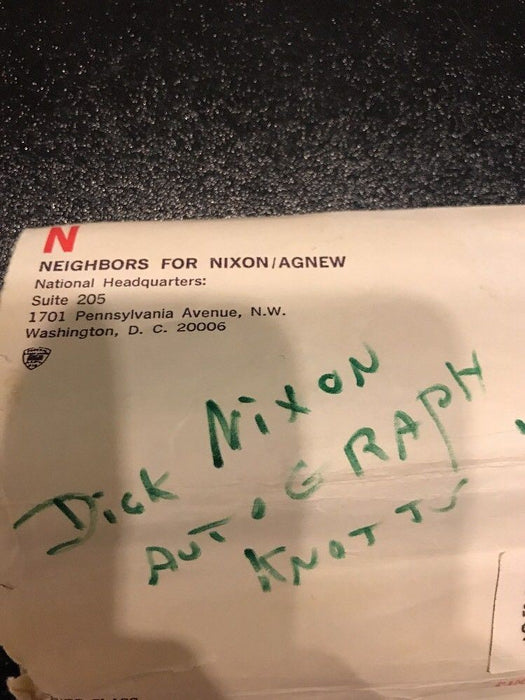 N
NEIGHBORS FOR NIXON/AGNEW
National Headquarters:
Suite 205
1701 Pennsylvania Avenue, N.W.
Washington, D. C. 20006
Dick Nixon
AUTOGRAPH
KNOTTS